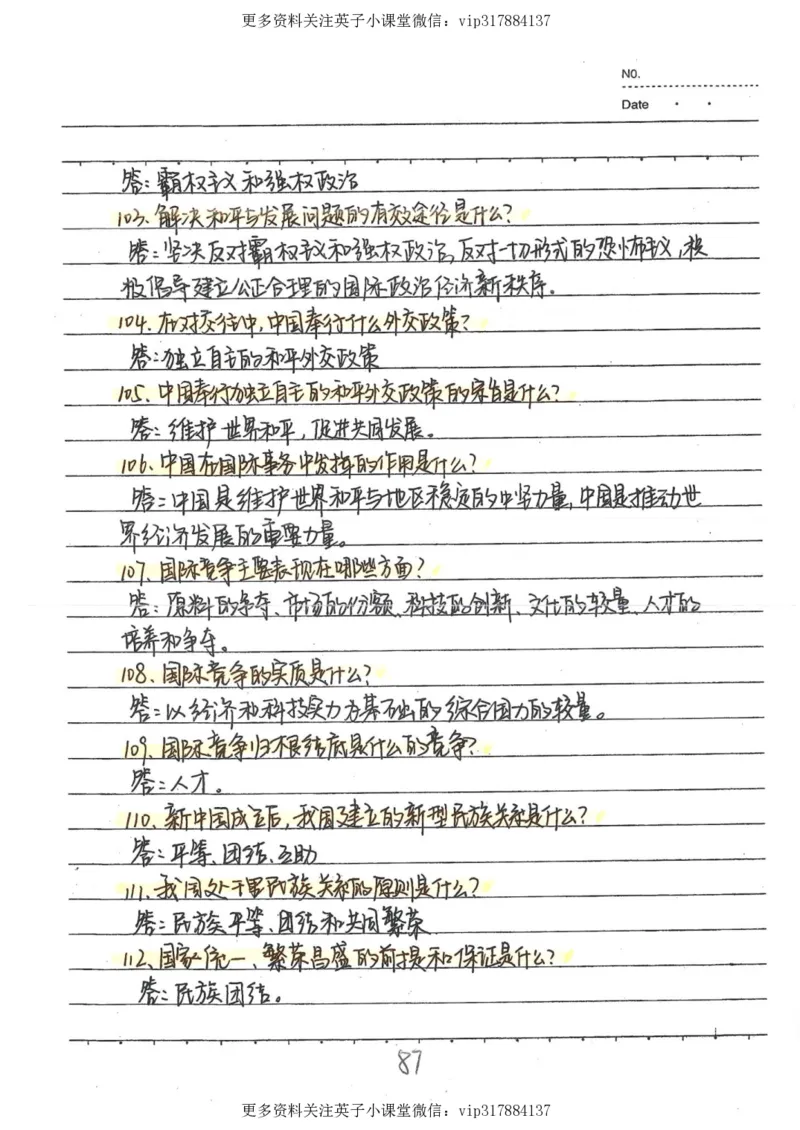 更多资料关注英子小课堂微信：vip317884137
NO.
Date
答：霸权主义和强权政治
103、解决和平与发展问题的有效途径是什么？
答：坚决反对霸权主义和强权政治，反对一切形式的恐怖主义，积
极倡导建立公正合理的国际政治经济新秩序。
104、在对交往中，中国奉行什么外交政策？
答：独立自主的和平外交政策
105、中国奉行独立自主的和平外交政策的宗旨是什么？
答：维护世界和平，促进共同发展。
106、中国在国际事务中发挥的作用是什么？
答：中国是维护世界和平与地区稳定的中坚力量，中国是推动世
界经济发展的重要力量。
107、国际竞争主要表现在哪些方面？
答：原料的争夺、市场的份额、科技的创新、文化的较量、人才的
培养和争夺。
108、国际竞争的实质是什么？
答：以经济和科技实力为基础的综合国力的较量。
109、国际竞争归根结底是什么的竞争？
答：人才。
110、新中国成立后，我国建立的新型民族关系是什么？
答：平等、团结、互助
111、我国处于理民族关系的原则是什么？
答：民族平等、团结和共同繁荣
112、国家统一、繁荣昌盛的前提和保证是什么？
答：民族团结。
87
更多资料关注英子小课堂微信：vip317884137